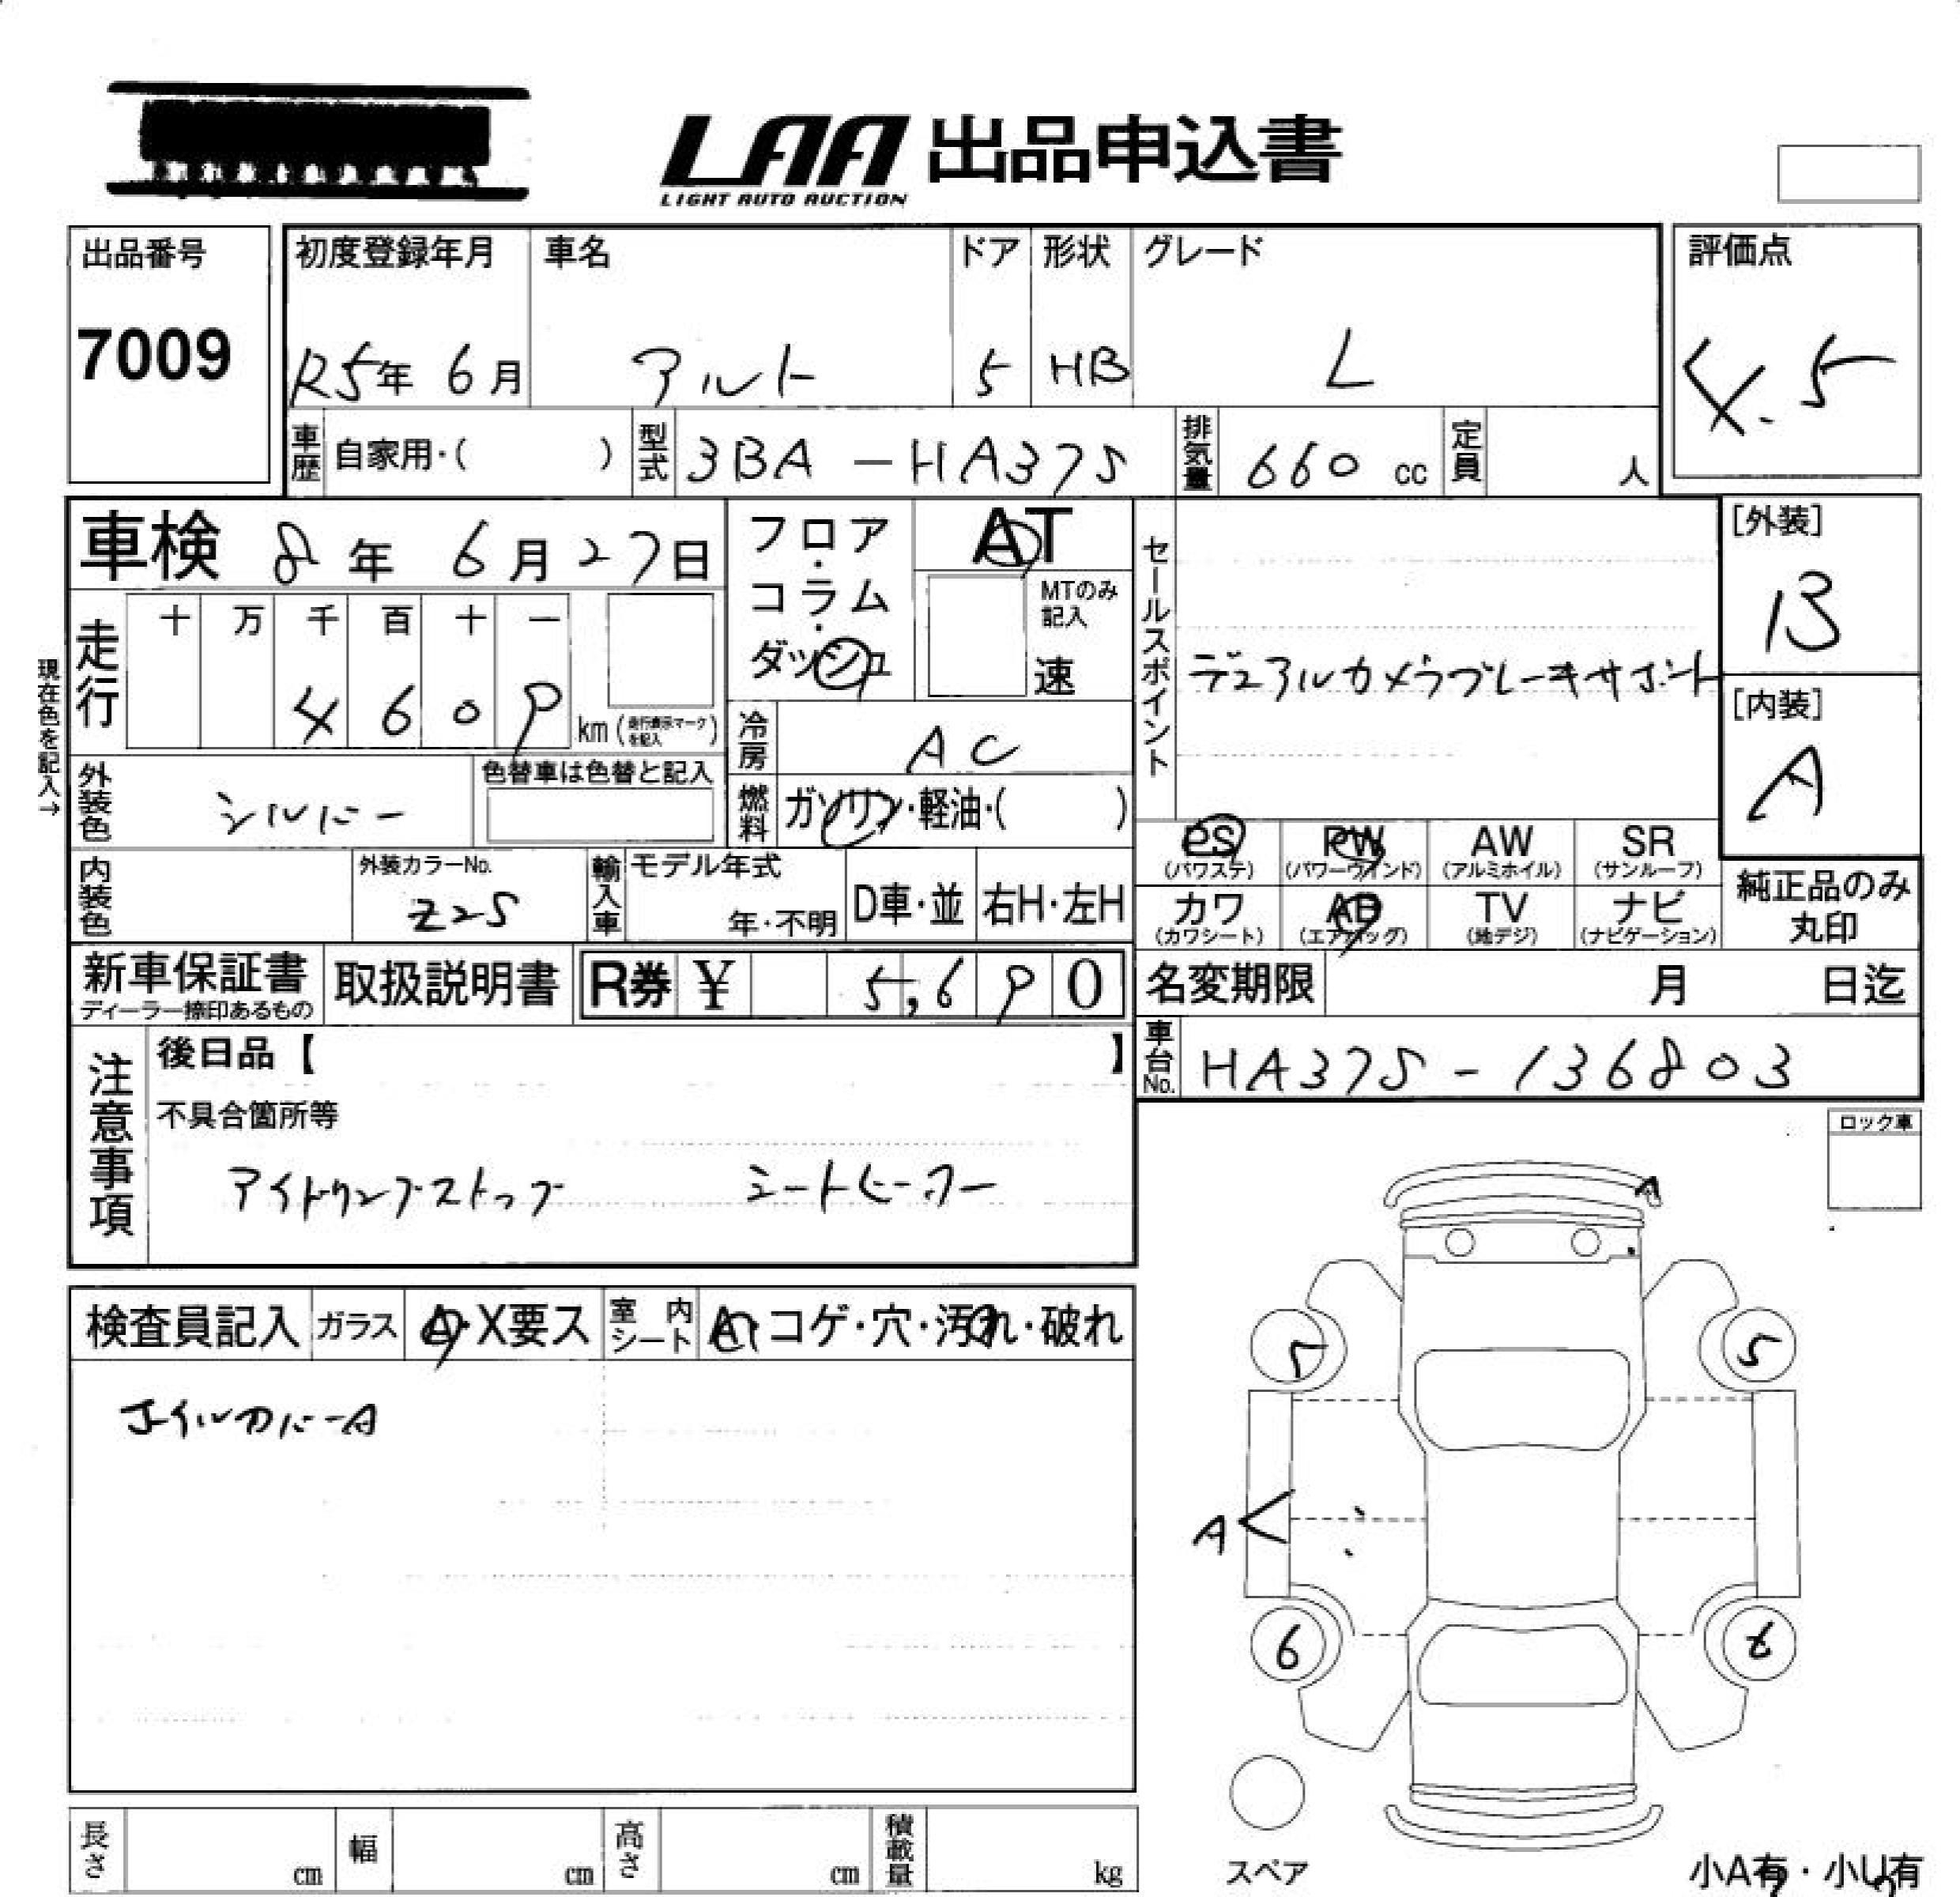 LAA 出品申込書
LIGHT AUTO AUCTION
出品番号
7009
初度登録年月
R5年 6月
車名
アルト
ドア
5
形状
HB
グレード
L
評価点
4.5
車歴 自家用・( )
型式 3BA-HA37S
排気量 660 cc
定員 人
車検 8年 6月27日
走行 十 万 千 百 十 一
4 6 0 9 km (走行表示マークを記入)
現在色を記入→
フロア・コラム・ダッシュ
AT
MTのみ記入
速
冷房 AC
燃料 ガソリン・軽油・( )
セールスポイント
デュアルカメラブレーキサポート
[外装]
B
[内装]
A
外装色 シルバー
色替車は色替と記入
内装色
外装カラーNo.
Z2S
輸入車 モデル年式
年・不明
D車・並
右H・左H
PS (パワステ)
PW (パワーウインド)
AW (アルミホイル)
SR (サンルーフ)
カワ (カワシート)
AB (エアバッグ)
TV (地デジ)
ナビ (ナビゲーション)
純正品のみ
丸印
新車保証書
ディーラー捺印あるもの
取扱説明書
R券 ¥ 5,690
名変期限 月 日迄
車台No. HA37S-136803
注意事項
後日品【 】
不具合箇所等
アイドリングストップ シートヒーター
ロック車
検査員記入
ガラス A・X要ス
室内シート A・コゲ・穴・汚れ・破れ
ホイルカバーA
A
5
5
A
6
6
スペア
小A有・小U有
長さ cm
幅 cm
高さ cm
積載量 kg